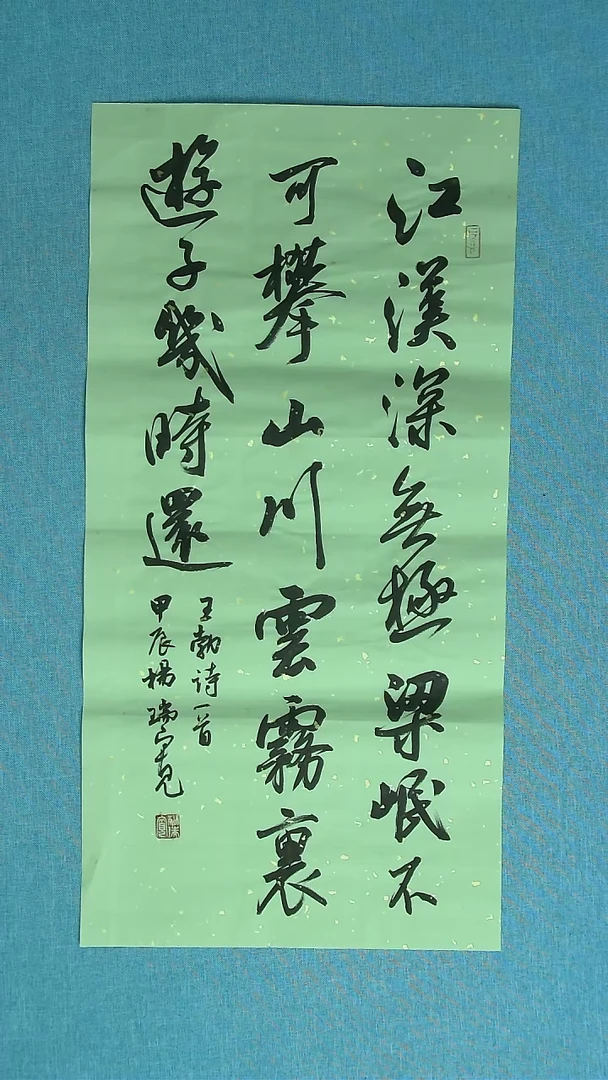 江漢深無極梁岷不
可攀山川雲霧裏
遊子幾時還
王勃诗一首
甲辰楊瑞